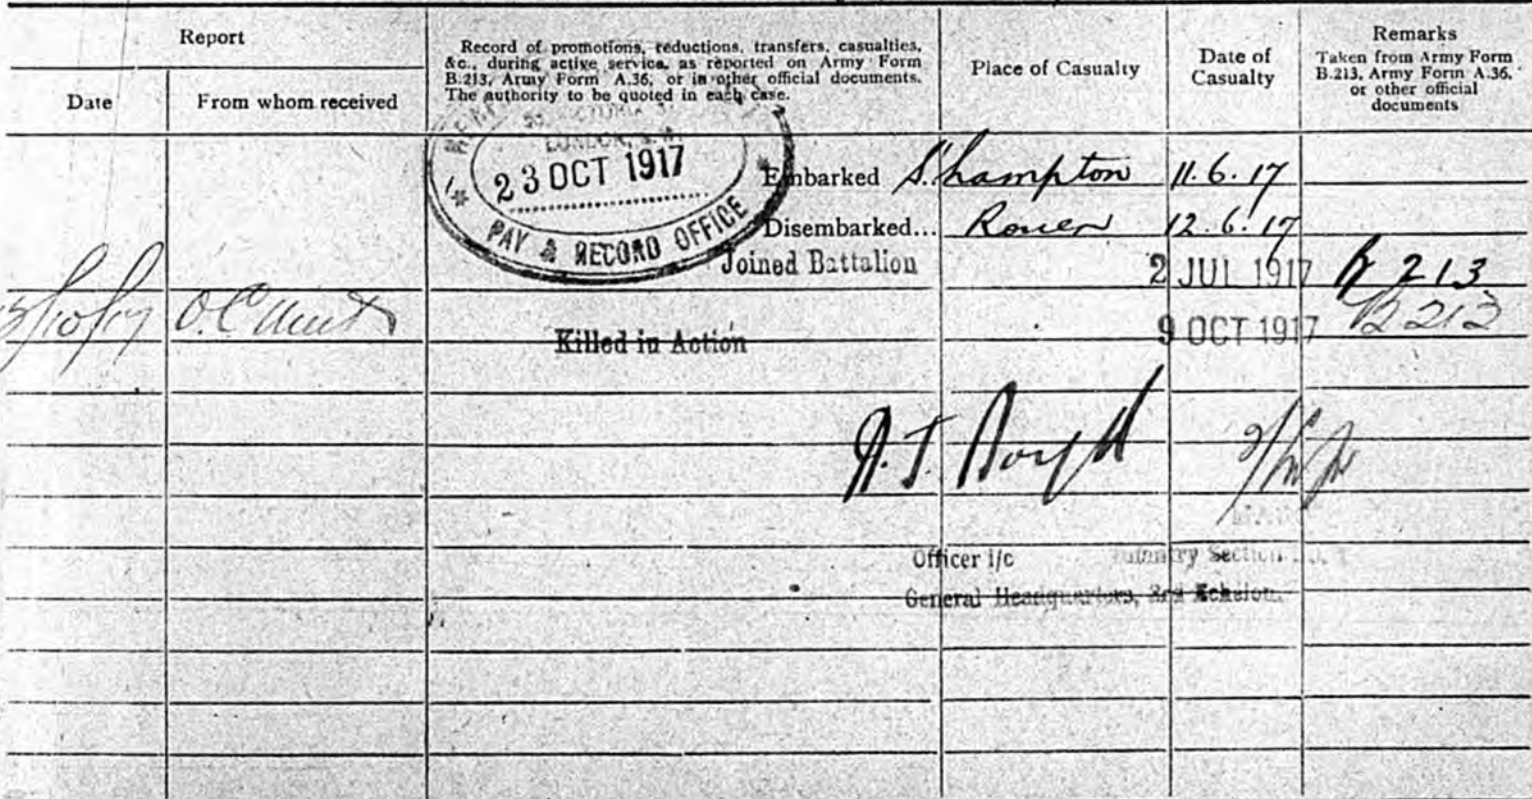 Report
Date
From whom received
Record of promotions, reductions, transfers, casualties,
&c., during active service, as reported on Army Form
B.213, Army Form A.36, or in other official documents.
The authority to be quoted in each case.
Place of Casualty
Date of
Casualty
Remarks
Taken from Army Form
B.213, Army Form A.36,
or other official
documents
LONDON, S.W.
23 OCT 1917
PAY & RECORD OFFICE
Embarked S'hampton 11.6.17
Disembarked... Rouen 12.6.17
Joined Battalion 2 JUL 1917 B 213
/10/17 O.C Unit Killed in Action 9 OCT 1917 B 213
Officer i/c Infantry Section
General Headquarters, 3rd Echelon.